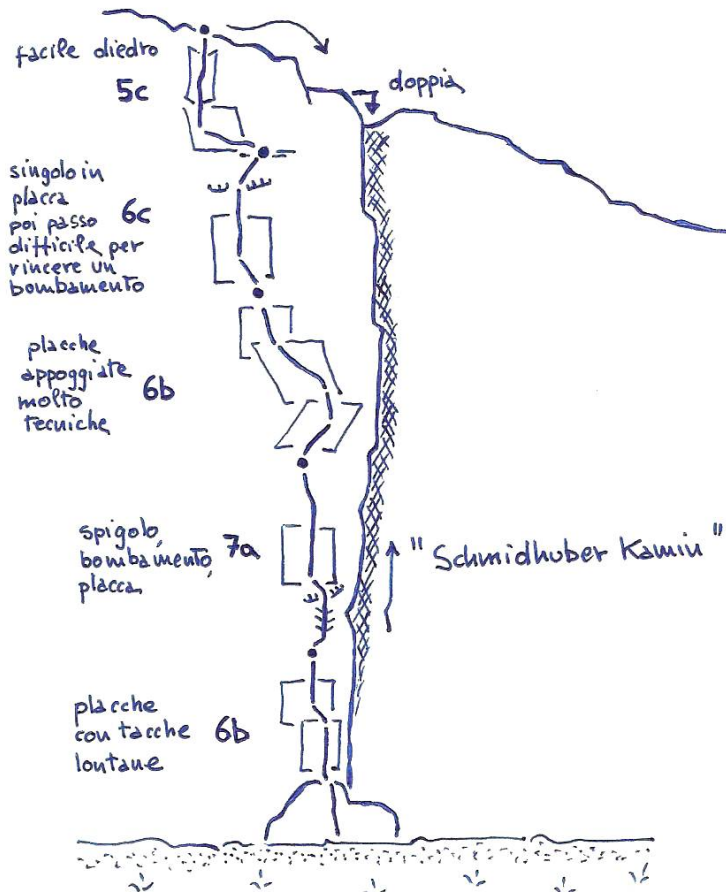 facile diedro
5c
doppia
singolo in
placca 6c
poi passo
difficile per
vincere un
bombamento
placche
appoggiate 6b
molto
tecniche
spigolo, 7a
bombamento,
placca
"Schmidhuber Kamin"
placche
con tacche 6b
lontane